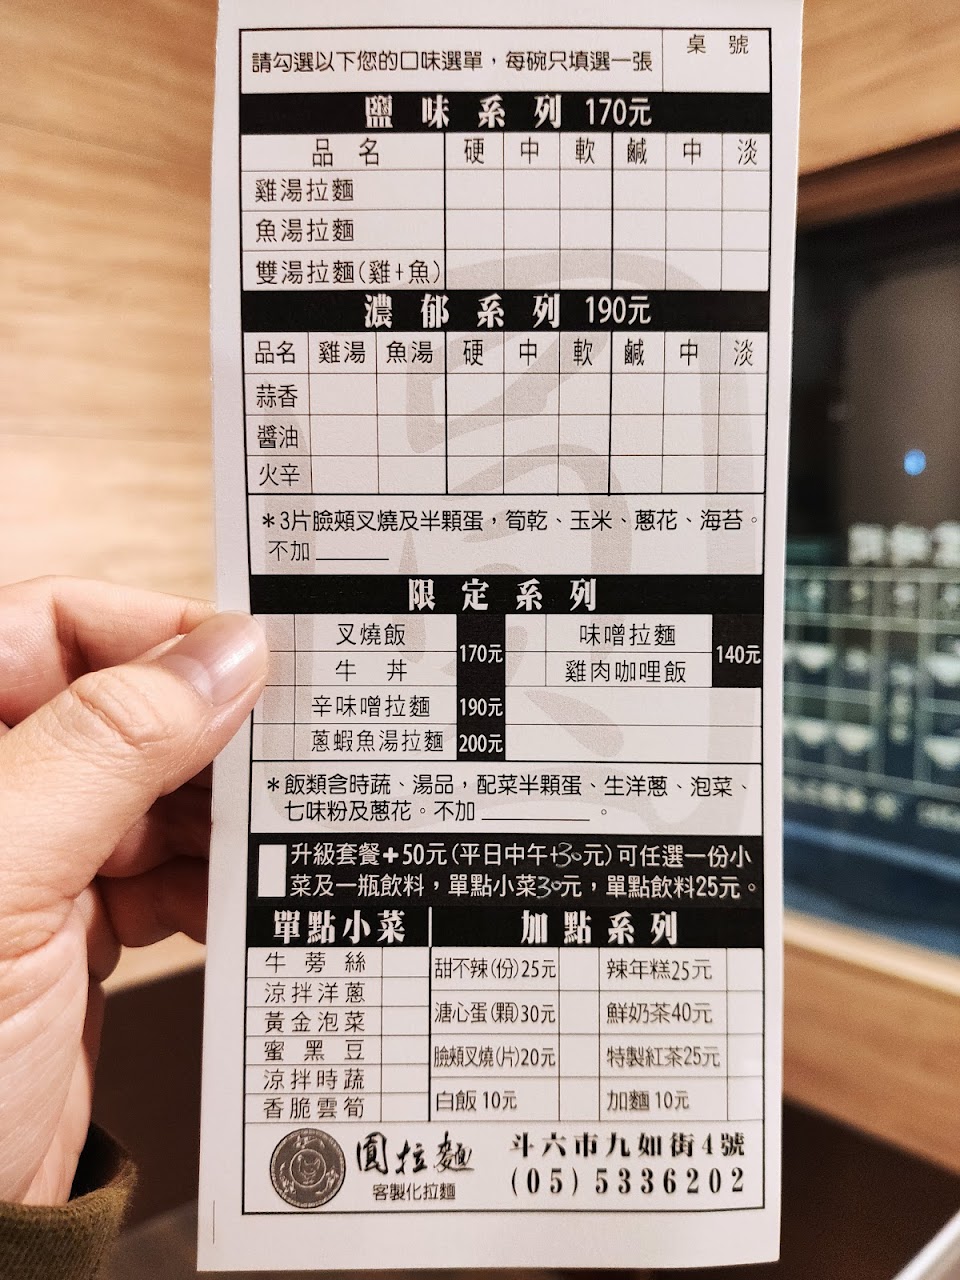 請勾選以下您的口味選單，每碗只填選一張
桌 號
鹽味系列 170元
品 名 硬 中 軟 鹹 中 淡
雞湯拉麵
魚湯拉麵
雙湯拉麵(雞+魚)
濃郁系列 190元
品名 雞湯 魚湯 硬 中 軟 鹹 中 淡
蒜香
醬油
火辛
＊3片臉頰叉燒及半顆蛋，筍乾、玉米、蔥花、海苔。
不加
限定系列
叉燒飯
牛 丼
170元
味噌拉麵
雞肉咖哩飯
140元
辛味噌拉麵 190元
蔥蝦魚湯拉麵 200元
＊飯類含時蔬、湯品，配菜半顆蛋、生洋蔥、泡菜、
七味粉及蔥花。不加 。
升級套餐+50元(平日中午+30元)可任選一份小
菜及一瓶飲料，單點小菜30元，單點飲料25元。
單點小菜
牛蒡絲
涼拌洋蔥
黃金泡菜
蜜黑豆
涼拌時蔬
香脆雲筍
加點系列
甜不辣(份)25元 辣年糕25元
溏心蛋(顆)30元 鮮奶茶40元
臉頰叉燒(片)20元 特製紅茶25元
白飯10元 加麵10元
圓拉麵
客製化拉麵
斗六市九如街4號
(05)5336202